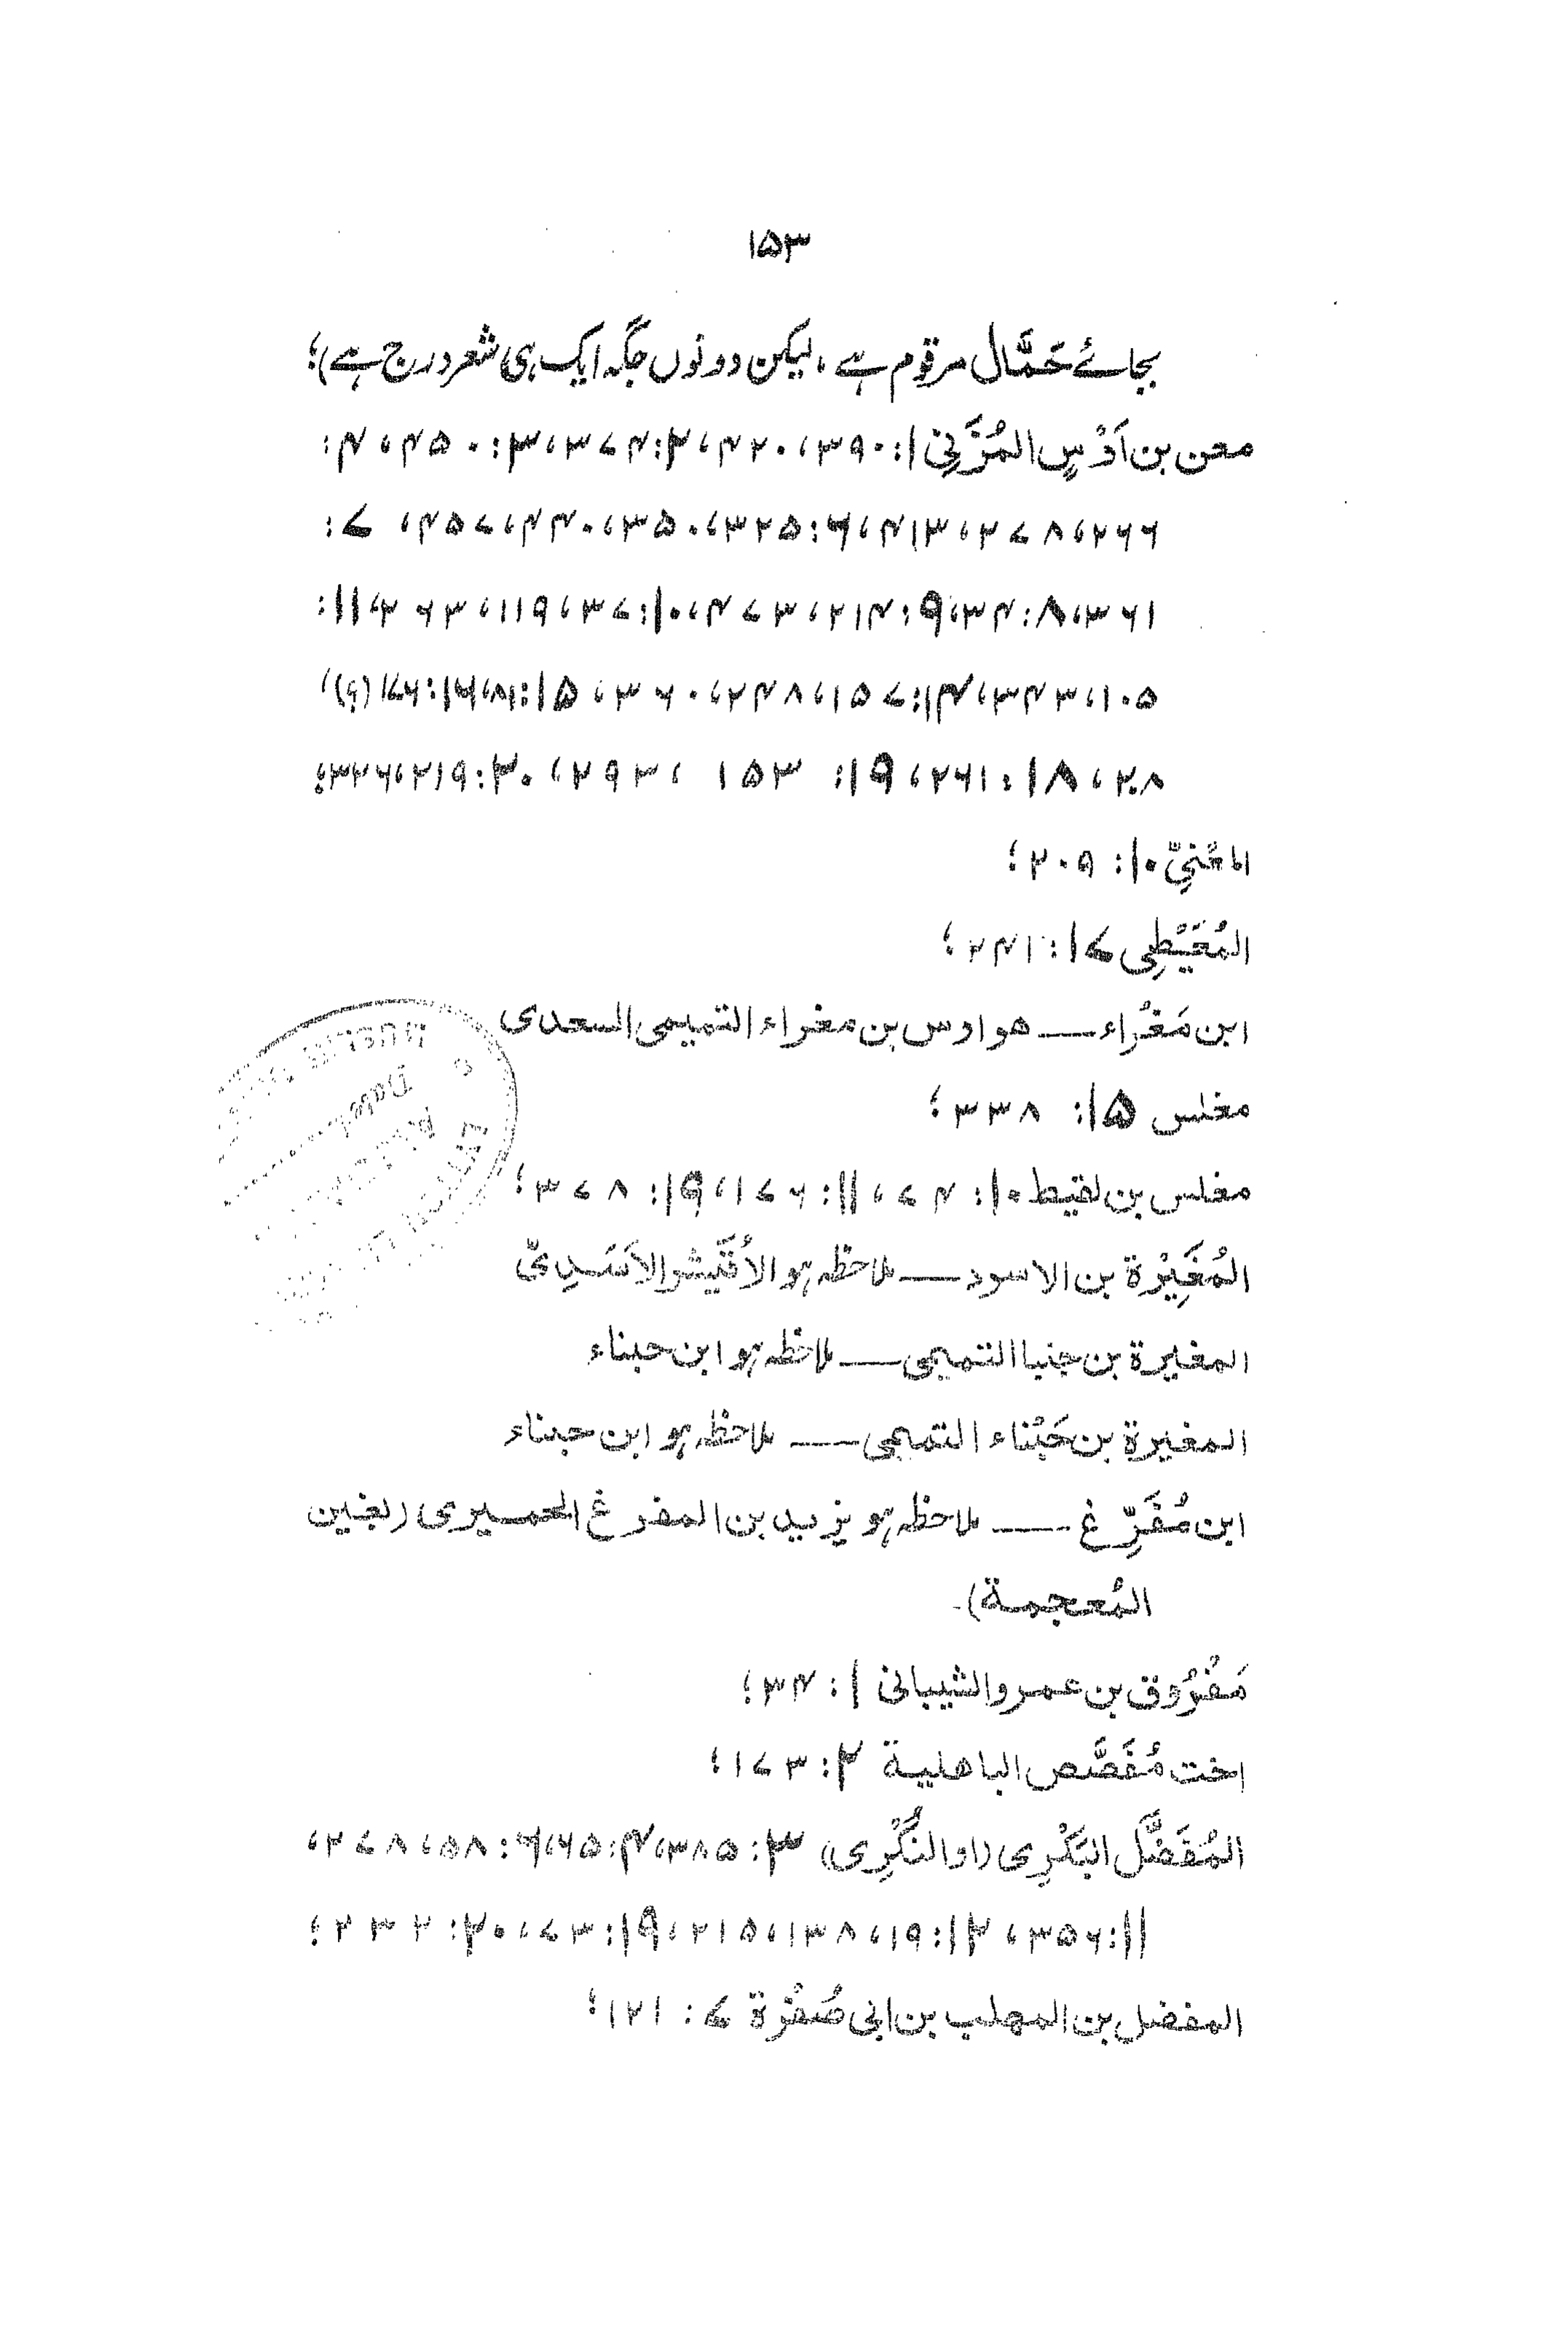 ۱۵۳
بجائے تَحمَّال مرقوم ہے ، لیکن دونوں جگہ ایک ہی شعر درج ہے)؛
معن بن اَوْسٍ المُزَنِی ۱: ۳۹۰، ۴۲۰، ۲: ۳۷۴، ۳: ۴۵۰، ۴:
۲۶۶، ۲۷۸، ۴۱۳، ۶: ۳۲۵، ۳۵۰، ۴۴۰، ۴۵۷، ۷:
۳۶۱، ۸: ۳۴، ۹: ۲۱۴، ۴۷۳، ۱۰: ۳۷، ۱۱۹، ۲۶۳، ۱۱:
۱۰۵، ۳۴۳، ۱۴: ۱۵۷، ۲۴۸، ۳۶۰، ۱۵: ۸۱، ۱۶: ۱۷۶ (؟)،
۲۰۸، ۱۸: ۲۶۱، ۱۹: ۱۵۳، ۲۹۳، ۲۰: ۲۱۹، ۳۲۶؛
المَعْنِیّ ۱۰: ۲۰۹؛
المُعَیْطِی ۱۷: ۲۴۱؛
ابن مَغْرَاء — ھو اوس بن مغراء التمیمی السعدی
مغلس ۱۵: ۳۳۸؛
مغلس بن لقیط ۱۰: ۷۴، ۱۱: ۱۷۶، ۱۹: ۳۷۸؛
المُغَیِْرَة بن الاسود — ملاحظہ ہو الأُقَیْشر الاَسَدِیّ
المغیرة بن جنیا التمیمی — ملاحظہ ہو ابن حبناء
المغیرة بن حَبْناء التمیمی — ملاحظہ ہو ابن حبناء
ابن مُفَرِّغ — ملاحظہ ہو یزید بن المفرغ الحمیری (بغین
المُعجمة)۔
مَفْرُوق بن عمرو الشیبانی ۱: ۳۴؛
اخت مُفَصَّص الباھلیة ۲: ۱۷۳؛
المُفَضَّل البَکْرِی (او النُکْرِی) ۳: ۳۸۵، ۴: ۶۵، ۶: ۵۸، ۲۷۸،
۱۱: ۳۵۶، ۱۲: ۱۹، ۱۳۸، ۲۱۵، ۱۹: ۷۳، ۲۰: ۲۳۲؛
المفضل بن المھلب بن ابی صُفْرَة ۷: ۱۲۱؛
Dated